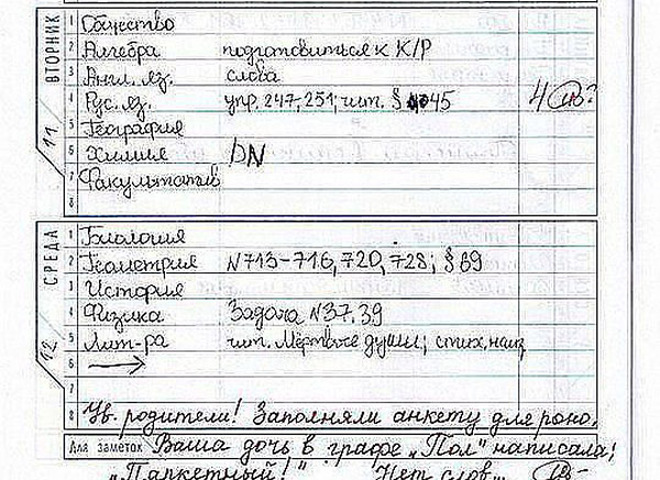 ВТОРНИК 11
1 Общество
2 Алгебра подготовиться к К/Р
3 Англ. яз. слова
4 Рус. яз. упр. 247, 251; чит. § 45 4
5 География
6 Химия
7 Факультатив
8
СРЕДА 12
1 Биология
2 Геометрия №713-716, 720, 728; § 69
3 История
4 Физика Задача №37, 39
5 Лит-ра чит. Мёртвые души; стих. наиз
6
7
8 Ув. родители! Заполняли анкету для роно.
Для заметок Ваша дочь в графе „Пол" написала;
„Паркетный!" Нет слов...